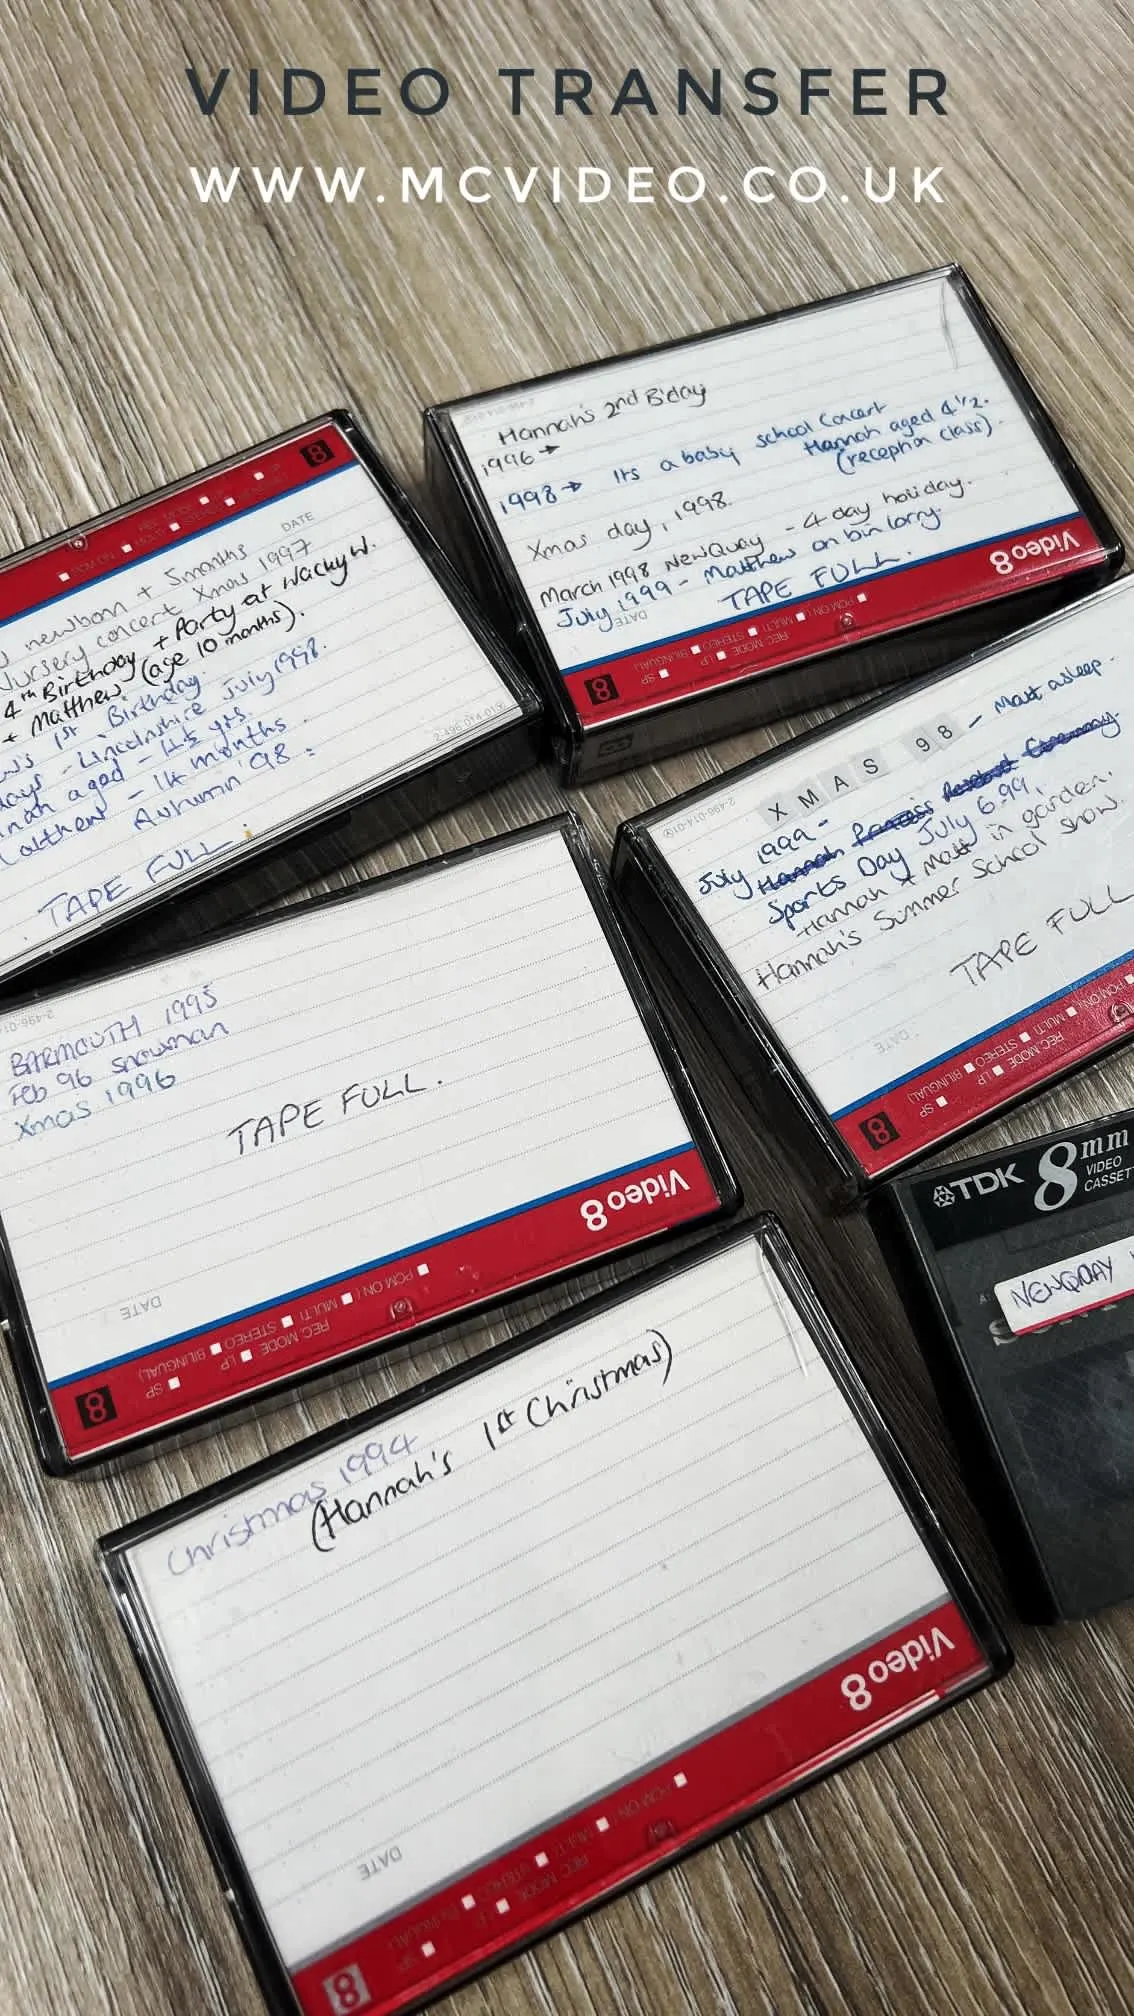 VIDEO TRANSFER
WWW.MCVIDEO.CO.UK
Hannah's 2nd B'day
1996 →
1998 → Its a baby school concert
Hannah aged 4½.
(reception class).
Xmas day, 1998.
March 1998 NewQuay - 4 day holiday.
July 1999 - Matthew on bin lorry.
TAPE FULL.
DATE
Video 8
PCM ON / MULTI STEREO BILINGUAL)
REC MODE LP SP
8
8
DATE
newborn + 5 months
Nursery concert Xmas 1997
4th Birthday + Party at Wacky W.
+ Matthew (age 10 months).
1st Birthday.
- Lincolnshire July 1998.
aged - 4½ yrs.
- 14 months.
Autumn '98
TAPE FULL
2-496-014-01
XMAS 98 - Matt asleep.
July 1999 -
Hannah
Sports Day July 6.99.
Hannah + Matt in garden.
Hannah's Summer School show.
TAPE FULL
DATE
PCM ON / MULTI STEREO BILINGUAL)
REC MODE LP SP
8
BARMOUTH 1995
Feb 96 snowman
Xmas 1996
TAPE FULL.
DATE
Video 8
PCM ON / MULTI STEREO BILINGUAL)
REC MODE LP SP
8
TDK 8mm
VIDEO
NEWQUAY
Christmas 1994
(Hannah's 1st Christmas)
DATE
Video 8
PCM ON / MULTI STEREO BILINGUAL)
REC MODE LP SP
8